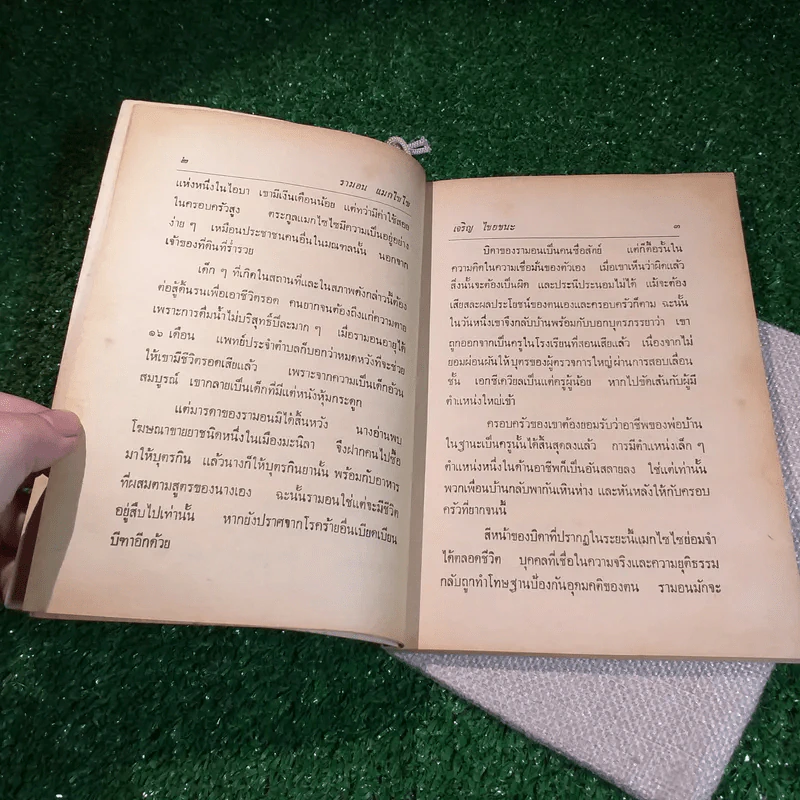 ๒
รามอน แมกไซไซ
แห่งหนึ่งในไอบา เขามีเงินเดือนน้อย แต่ทว่ามีค่าใช้สอย
ในครอบครัวสูง ตระกูลแมกไซไซมีความเป็นอยู่อย่าง
ง่าย ๆ เหมือนประชาชนคนอื่นในมณฑลนั้น นอกจาก
เจ้าของที่ดินที่ร่ำรวย
เด็ก ๆ ที่เกิดในสถานที่และในสภาพดังกล่าวนี้ต้อง
ต่อสู้ดิ้นรนเพื่อเอาชีวิตรอด คนยากจนต้องถึงแก่ความตาย
เพราะการดื่มน้ำไม่บริสุทธิ์ปีละมาก ๆ เมื่อรามอนอายุได้
๑๖ เดือน แพทย์ประจำตำบลก็บอกว่าหมดหวังที่จะช่วย
ให้เขามีชีวิตรอดเสียแล้ว เพราะจากความเป็นเด็กอ้วน
สมบูรณ์ เขากลายเป็นเด็กที่มีแต่หนังหุ้มกระดูก
แต่มารดาของรามอนมิได้สิ้นหวัง นางอ่านพบ
โฆษณาขายยาชนิดหนึ่งในเมืองมะนิลา จึงฝากคนไปซื้อ
มาให้บุตรกิน แล้วนางก็ให้บุตรกินยานั้น พร้อมกับอาหาร
ที่ผสมตามสูตรของนางเอง ฉะนั้นรามอนใช่แต่จะมีชีวิต
อยู่สืบไปเท่านั้น หากยังปราศจากโรคร้ายอื่นเบียดเบียน
บีฑาอีกด้วย
เจริญ ไชยชนะ
๓
บิดาของรามอนเป็นคนซื่อสัตย์ แต่ก็ดื้อรั้นใน
ความคิดในความเชื่อมั่นของตัวเอง เมื่อเขาเห็นว่าผิดแล้ว
สิ่งนั้นจะต้องเป็นผิด และประนีประนอมไม่ได้ แม้จะต้อง
เสียสละผลประโยชน์ของตนเองและครอบครัวก็ตาม ฉะนั้น
ในวันหนึ่งเขาจึงกลับบ้านพร้อมกับบอกบุตรภรรยาว่า เขา
ถูกออกจากเป็นครูในโรงเรียนที่สอนเสียแล้ว เนื่องจากไม่
ยอมผ่อนผันให้บุตรของผู้ตรวจการใหญ่ผ่านการสอบเลื่อน
ชั้น เอกซีเควียลเป็นแต่ครูผู้น้อย หากไปขัดเส้นกับผู้มี
ตำแหน่งใหญ่เข้า
ครอบครัวของเขาต้องยอมรับว่าอาชีพของพ่อบ้าน
ในฐานะเป็นครูนั้นได้สิ้นสุดลงแล้ว การมีตำแหน่งเล็ก ๆ
ตำแหน่งหนึ่งในด้านอาชีพก็เป็นอันสลายลง ใช่แต่เท่านั้น
พวกเพื่อนบ้านกลับพากันเหินห่าง และหันหลังให้กับครอบ
ครัวที่ยากจนนี้
สีหน้าของบิดาที่ปรากฏในระยะนี้แมกไซไซย่อมจำ
ได้ตลอดชีวิต บุคคลที่เชื่อในความจริงและความยุติธรรม
กลับถูกทำโทษฐานป้องกันอุดมคติของตน รามอนมักจะ